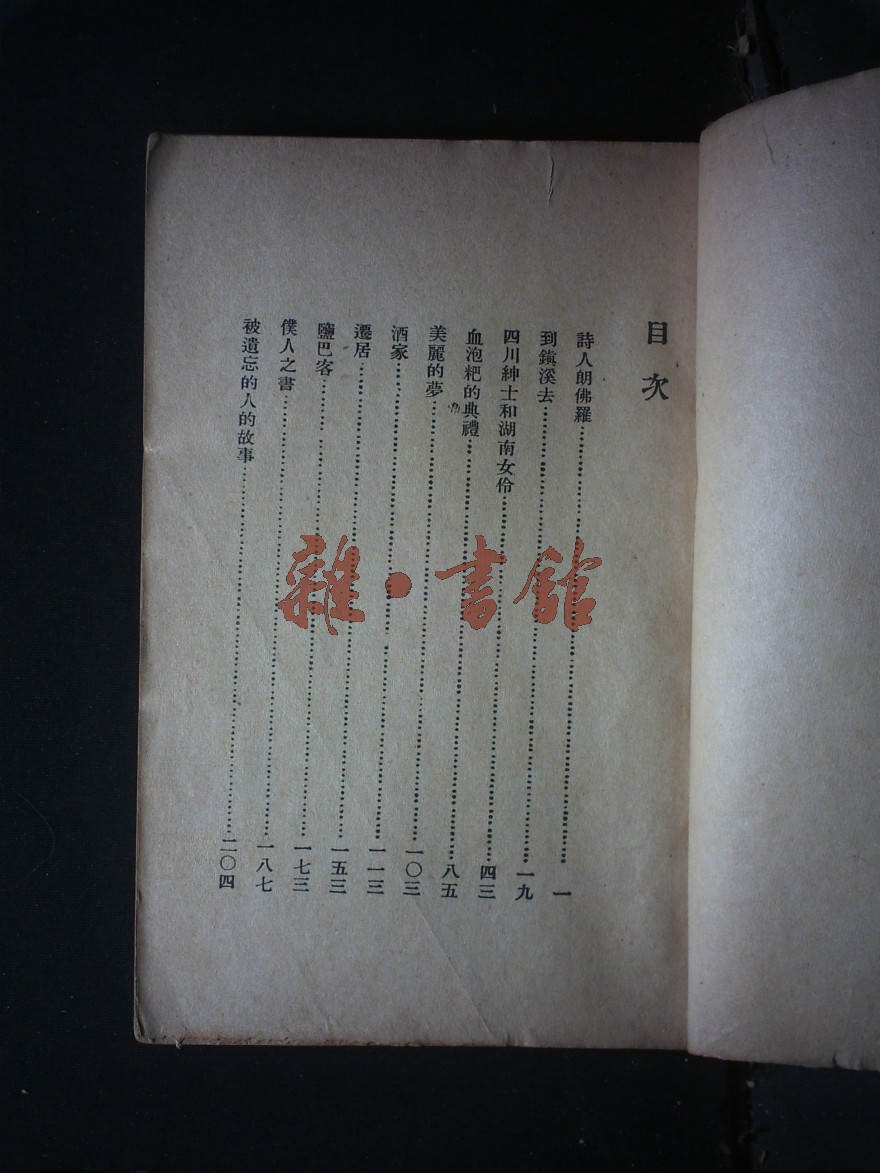 目次
詩人朗佛羅……一
到鎮溪去……一九
四川紳士和湖南女伶……四三
血泡粑的典禮……八五
美麗的夢……一〇三
酒家……一一三
遷居……一五三
鹽巴客……一七三
僕人之書……一八七
被遺忘的人的故事……二〇四
雜·書館